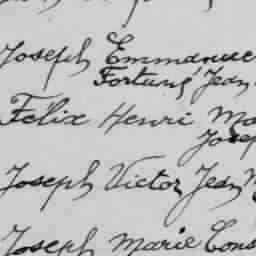 Joseph Emmanue
Fortuné Jean
Félix Henri Ma
Josep
Joseph Victor Jean M
Joseph Marie Cons